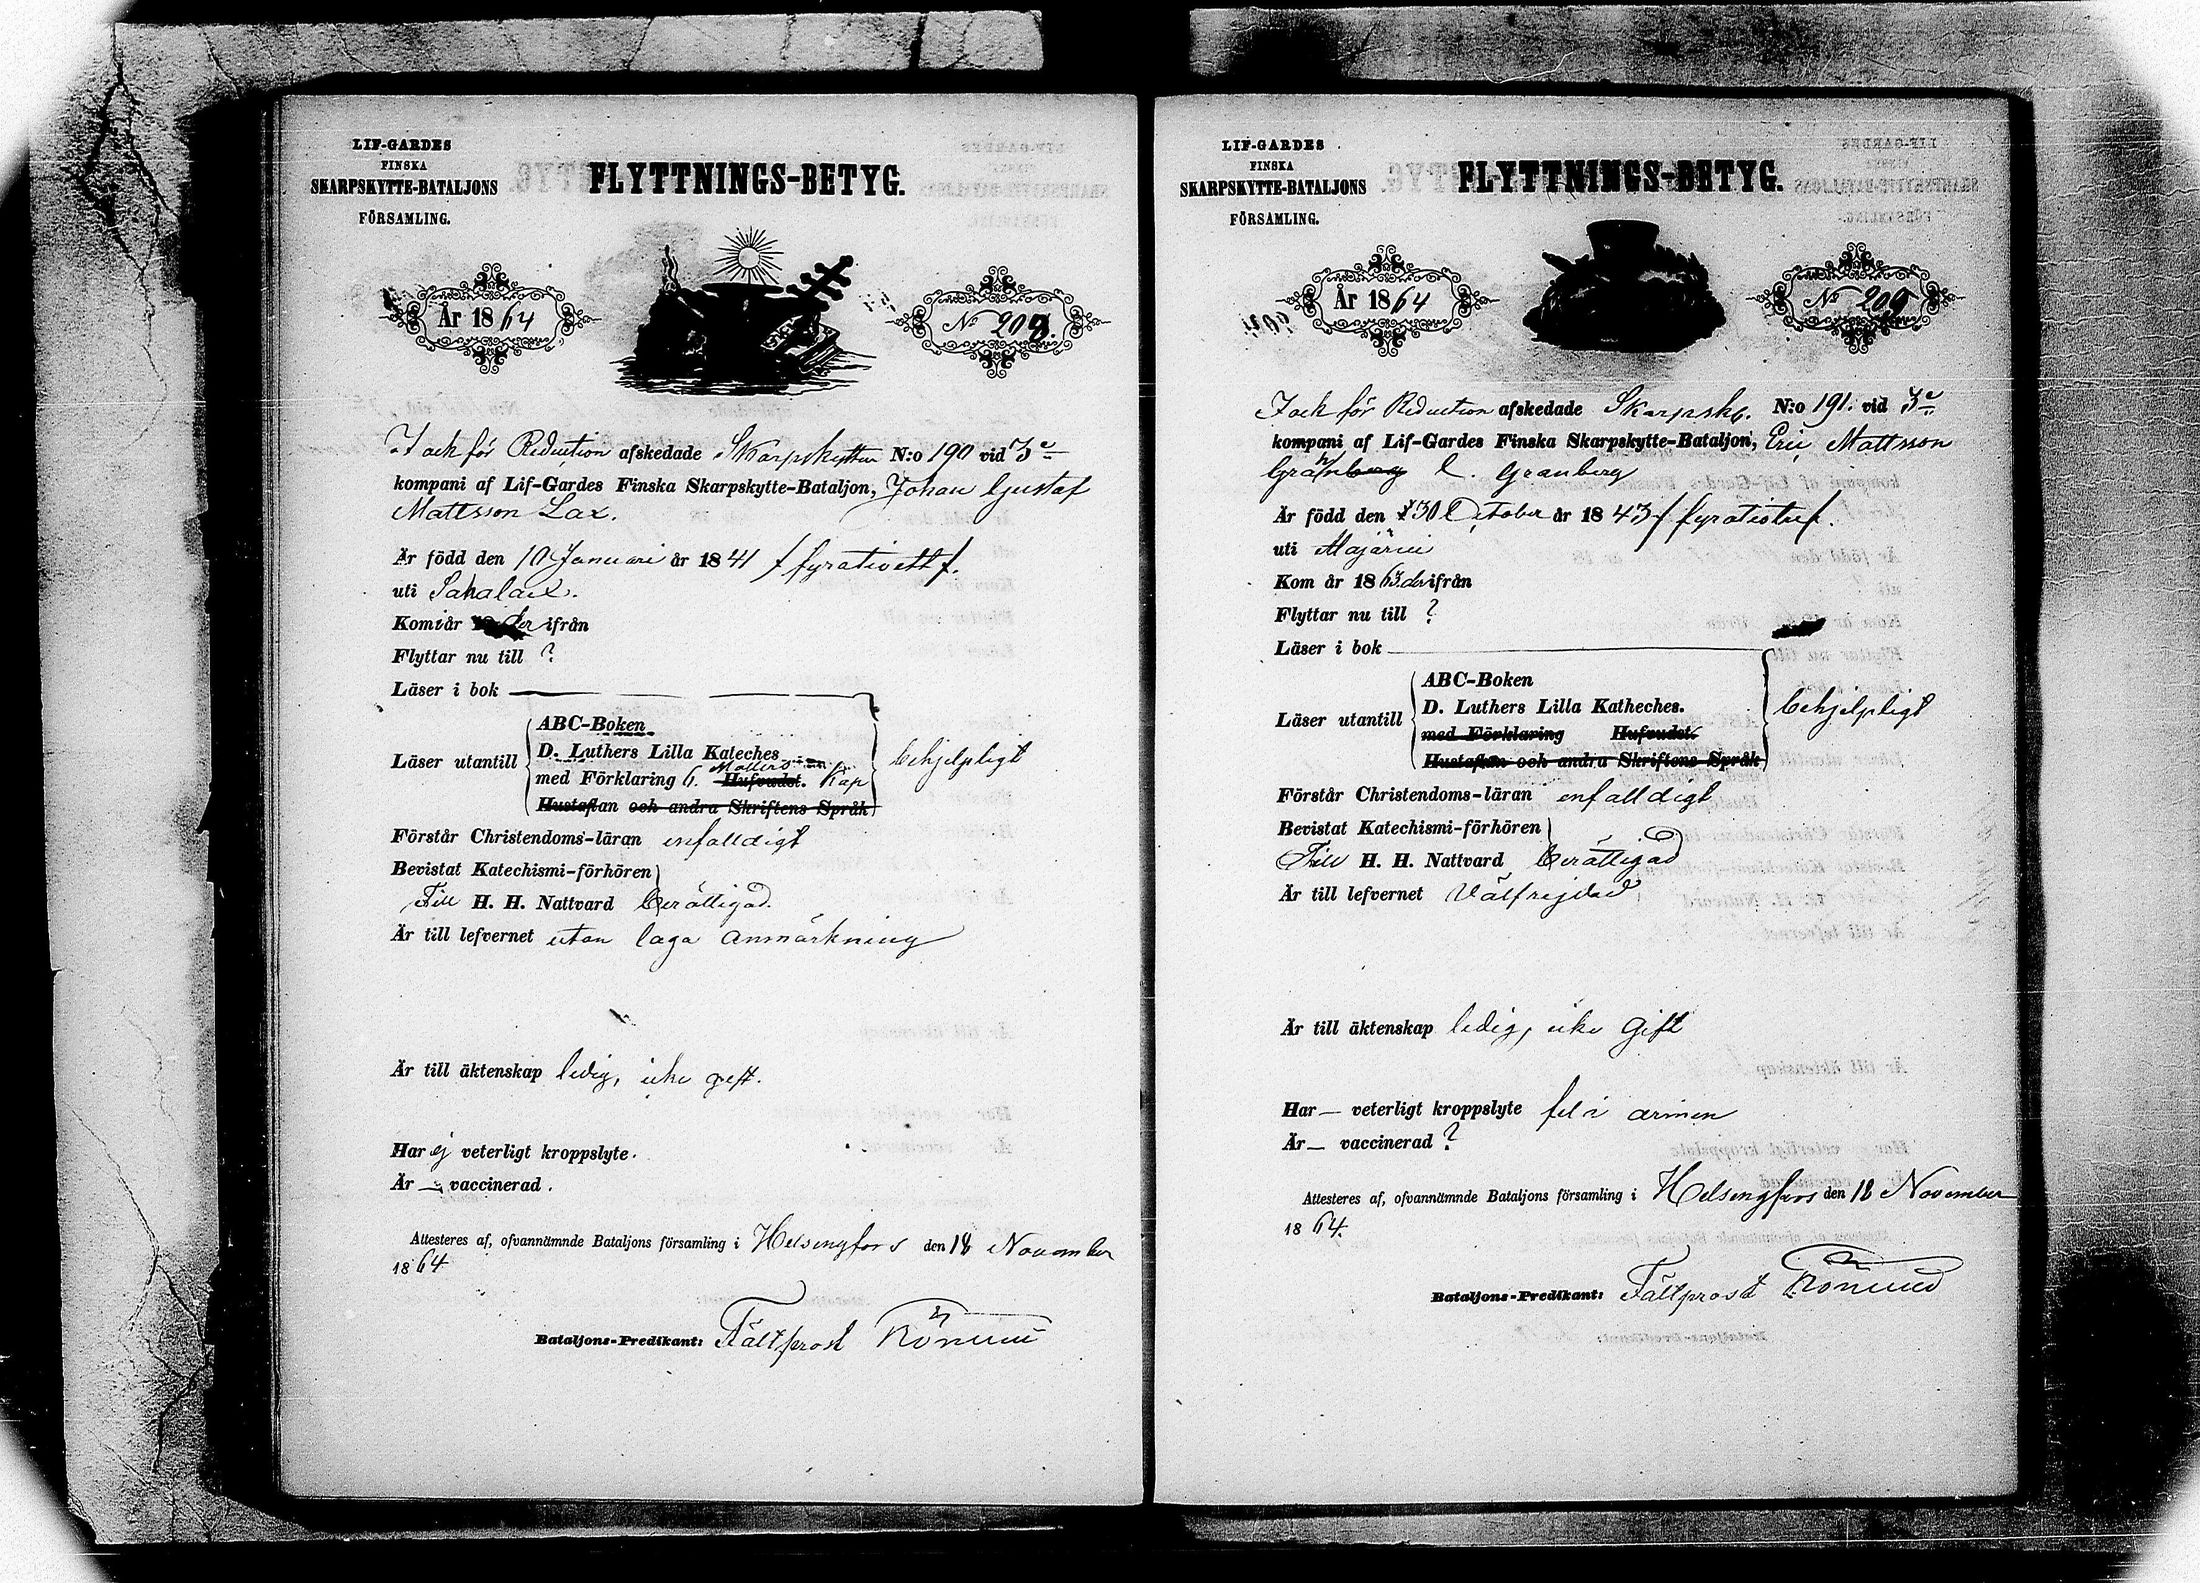 LIF-GARDES
FINSKA
SKARPSKYTTE-BATALJONS
FÖRSAMLING.
FLYTTNINGS-BETYG.
År 1864
No 208.
för Reduction afskedade Skarpskytten N:o 190 vid 3e
kompani af Lif-Gardes Finska Skarpskytte-Bataljon, Johan Gustaf
Mattsson Lax.
Är född den 10 Januari år 1841 / fyratioett /.
uti Sahalax.
Kom i år der ifrån
Flyttar nu till ?
Läser i bok
Läser utantill
ABC-Boken
D. Luthers Lilla Kateches
med Förklaring 6. Hufvudst. Kap
Hustaflan och andra Skriftens Språk
behjelpligt
Förstår Christendoms-läran enfalldigt
Bevistat Katechismi-förhören
Till H. H. Nattvard berättigad.
Är till lefvernet utan laga anmärkning
Är till äktenskap ledig, icke gift.
Har ej veterligt kroppslyte.
Är — vaccinerad.
Attesteres af, ofvannämnde Bataljons församling i Helsingfors den 18 November
1864
Bataljons-Predikant: Fältprost
LIF-GARDES
FINSKA
SKARPSKYTTE-BATALJONS
FÖRSAMLING.
FLYTTNINGS-BETYG.
År 1864
No 209
för Reduction afskedade Skarpsk. N:o 191. vid 3e
kompani af Lif-Gardes Finska Skarpskytte-Bataljon, Eric Mattsson
Granberg
Är född den 30 October år 1843 / fyratiotre /.
uti
Kom år 1863 der ifrån
Flyttar nu till ?
Läser i bok
Läser utantill
ABC-Boken
D. Luthers Lilla Katheches.
med Förklaring Hufvudst.
Hustaflan och andra Skriftens Språk
behjelpligt
Förstår Christendoms-läran enfalldigt
Bevistat Katechismi-förhören
Till H. H. Nattvard berättigad
Är till lefvernet Välfrejdad
Är till äktenskap ledig, icke gift
Har — veterligt kroppslyte fel i armen
Är — vaccinerad ?
Attesteres af, ofvannämnde Bataljons församling i Helsingfors den 18 November
1864.
Bataljons-Predikant: Fältprost